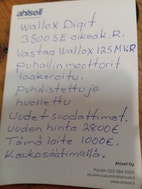 ahlsell
Wallox Digit
3500 SE oikea k. R.
Vastaa Wallox 125 MKR
puhallin moottorit
laakeroitu.
puhdistettu ja
huollettu.
Uudet suodattimet.
Uuden hinta 2800€
Tämä laite 1000€.
Kaukosäätimellä.
Ahlsell Oy